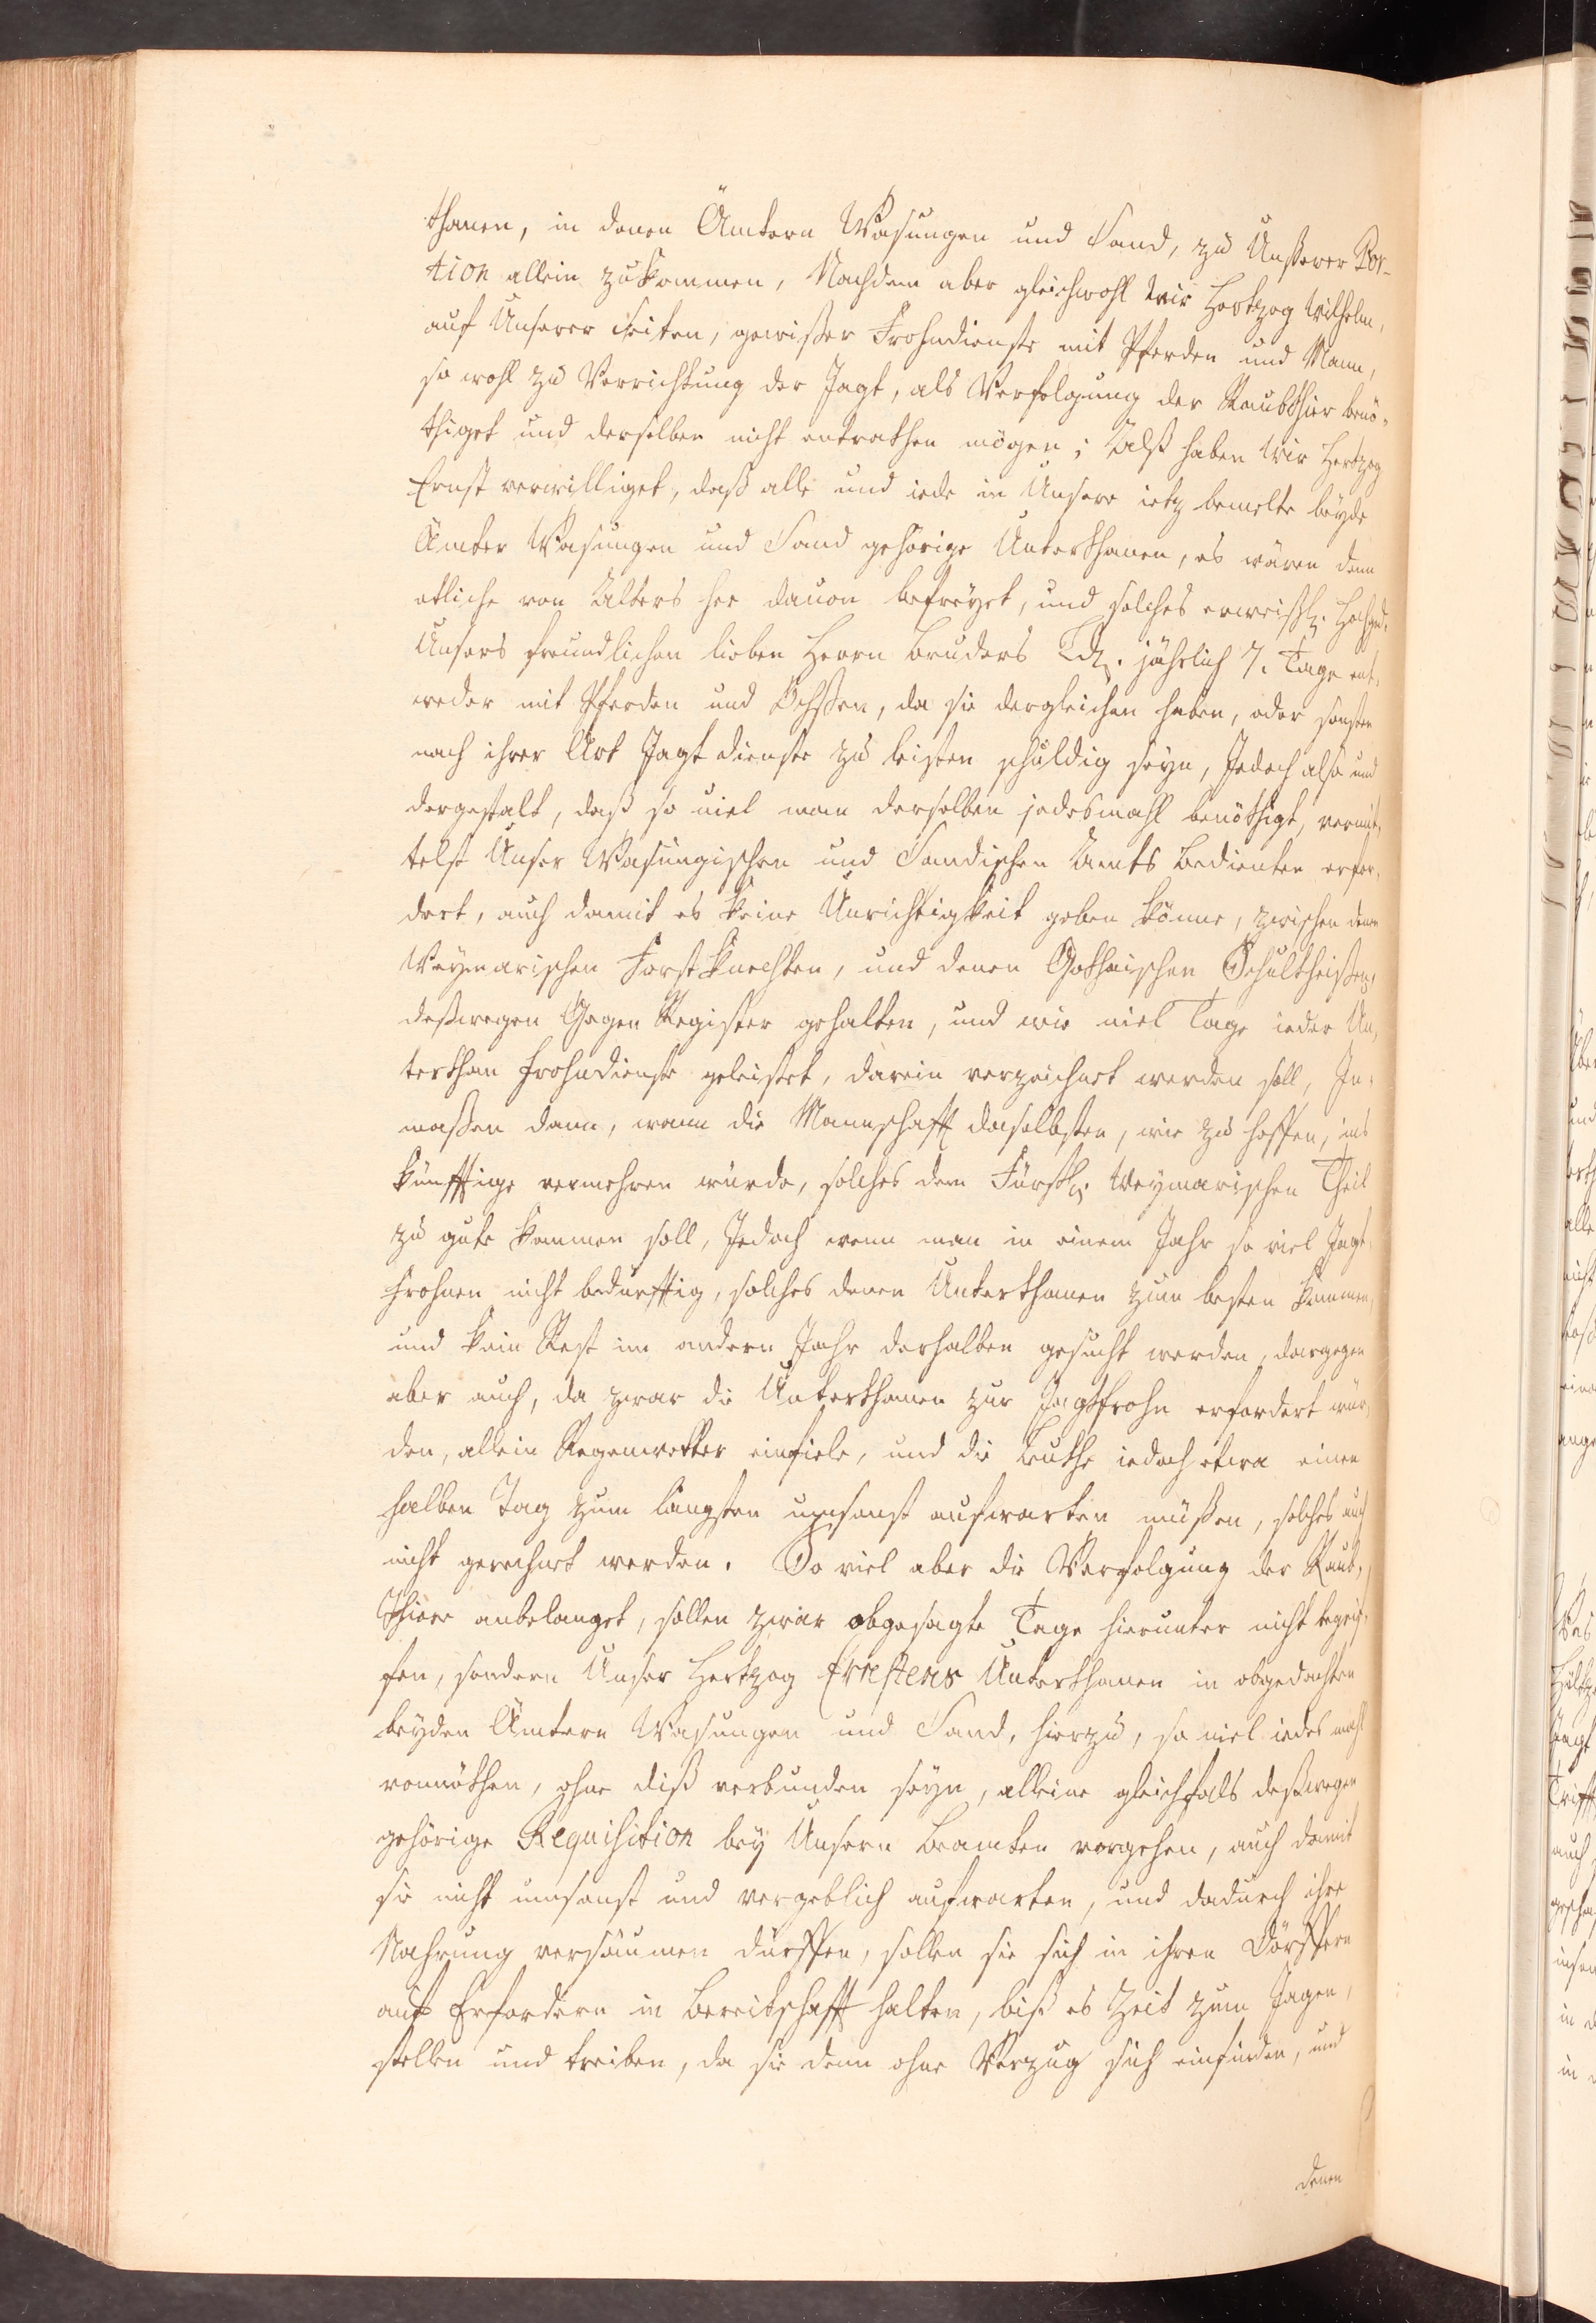 thanen, in denen Ämtern Wasungen und Sand, zu Unßerer Por-
tion allein zukommen, Nachdem aber gleichwohl Wir Hertzog Wilhelm,
auf Unserer Seiten, gewißer Frohndienste mit Pferden und Mann,
so wohl zu Verrichtung der Jagt, als Verfolgung der Raubthier benö-
thiget und derselben nicht entrathen mögen; Alß haben Wir Hertzog
Ernst verwilliget, daß alle und iede in Unsere ietz bemelte beyde
Ämter Wasungen und Sand gehörige Unterthanen, es wären denn
etliche von Alters her dauon befreyet, und solches erweißl. hochged.
Unsers freundlichen lieben Herrn Bruders Ld. jährlich 7. Tage ent-
weder mit Pferden und Ochßen, da sie dergleichen haben, oder sonsten
nach ihrer Art Jagt dienste zu leisten schuldig seyn, Jedoch also und
dergestalt, daß so uiel man derselben jedesmahl benöthigt, vermit-
telst Unser Wasungischen und Sandischen Amts Bedienten erfor-
dert, auch damit es keine Unrichtigkeit geben könne, zwischen denen
Weymarischen Forstknechten, und denen Gothaischen Schultheißen,
deßwegen Gegen Register gehalten, und wie uiel Tage ieder Un-
terthan Frohndienste geleistet, darein verzeichnet werden soll, In-
maßen dann, wann die Mannschafft daselbsten, wie zu hoffen, ins
künfftige vermehren würde, solches dem Fürstl. Weymarischen Theil
zu gute kommen soll, Jedoch wenn man in einem Jahr so viel Jagt-
frohnen nicht bedürfftig, solches denen Unterthanen zum besten kommen,
und kein Rest im andern Jahr derhalben gesucht werden, dargegen
aber auch, da zwar die Unterthanen zur Jagtfrohn erfordert wür-
den, allein Regenwetter einfiele, und die Leuthe iedoch etwa einen
halben Tag zum längsten umsonst aufwarten müßen, solches auch
nicht gerechnet werden. So viel aber die Verfolgung der Raub-
Thiere anbelanget, sollen zwar obgesagte Tage hierunter nicht begrif-
fen, sondern Unser Hertzog Ernstens Unterthanen in obgedachten
beyden Ämtern Wasungen und Sand, hierzu, so uiel iedes mahl
vonnöthen, ohne diß verbunden seyn, alleine gleichfals deßwegen
gehörige Requisition bey Unsern Beamten vorgehen, auch damit
sie nicht umsonst und vergeblich aufwarten, und dadurch ihre
Nahrung versäumen dürffen, sollen sie sich in ihren Dörffern
auf Erfordern in Bereitschafft halten, biß es Zeit zum Jagen,
stellen und treiben, da sie denn ohne Verzug sich einfinden, und
denen